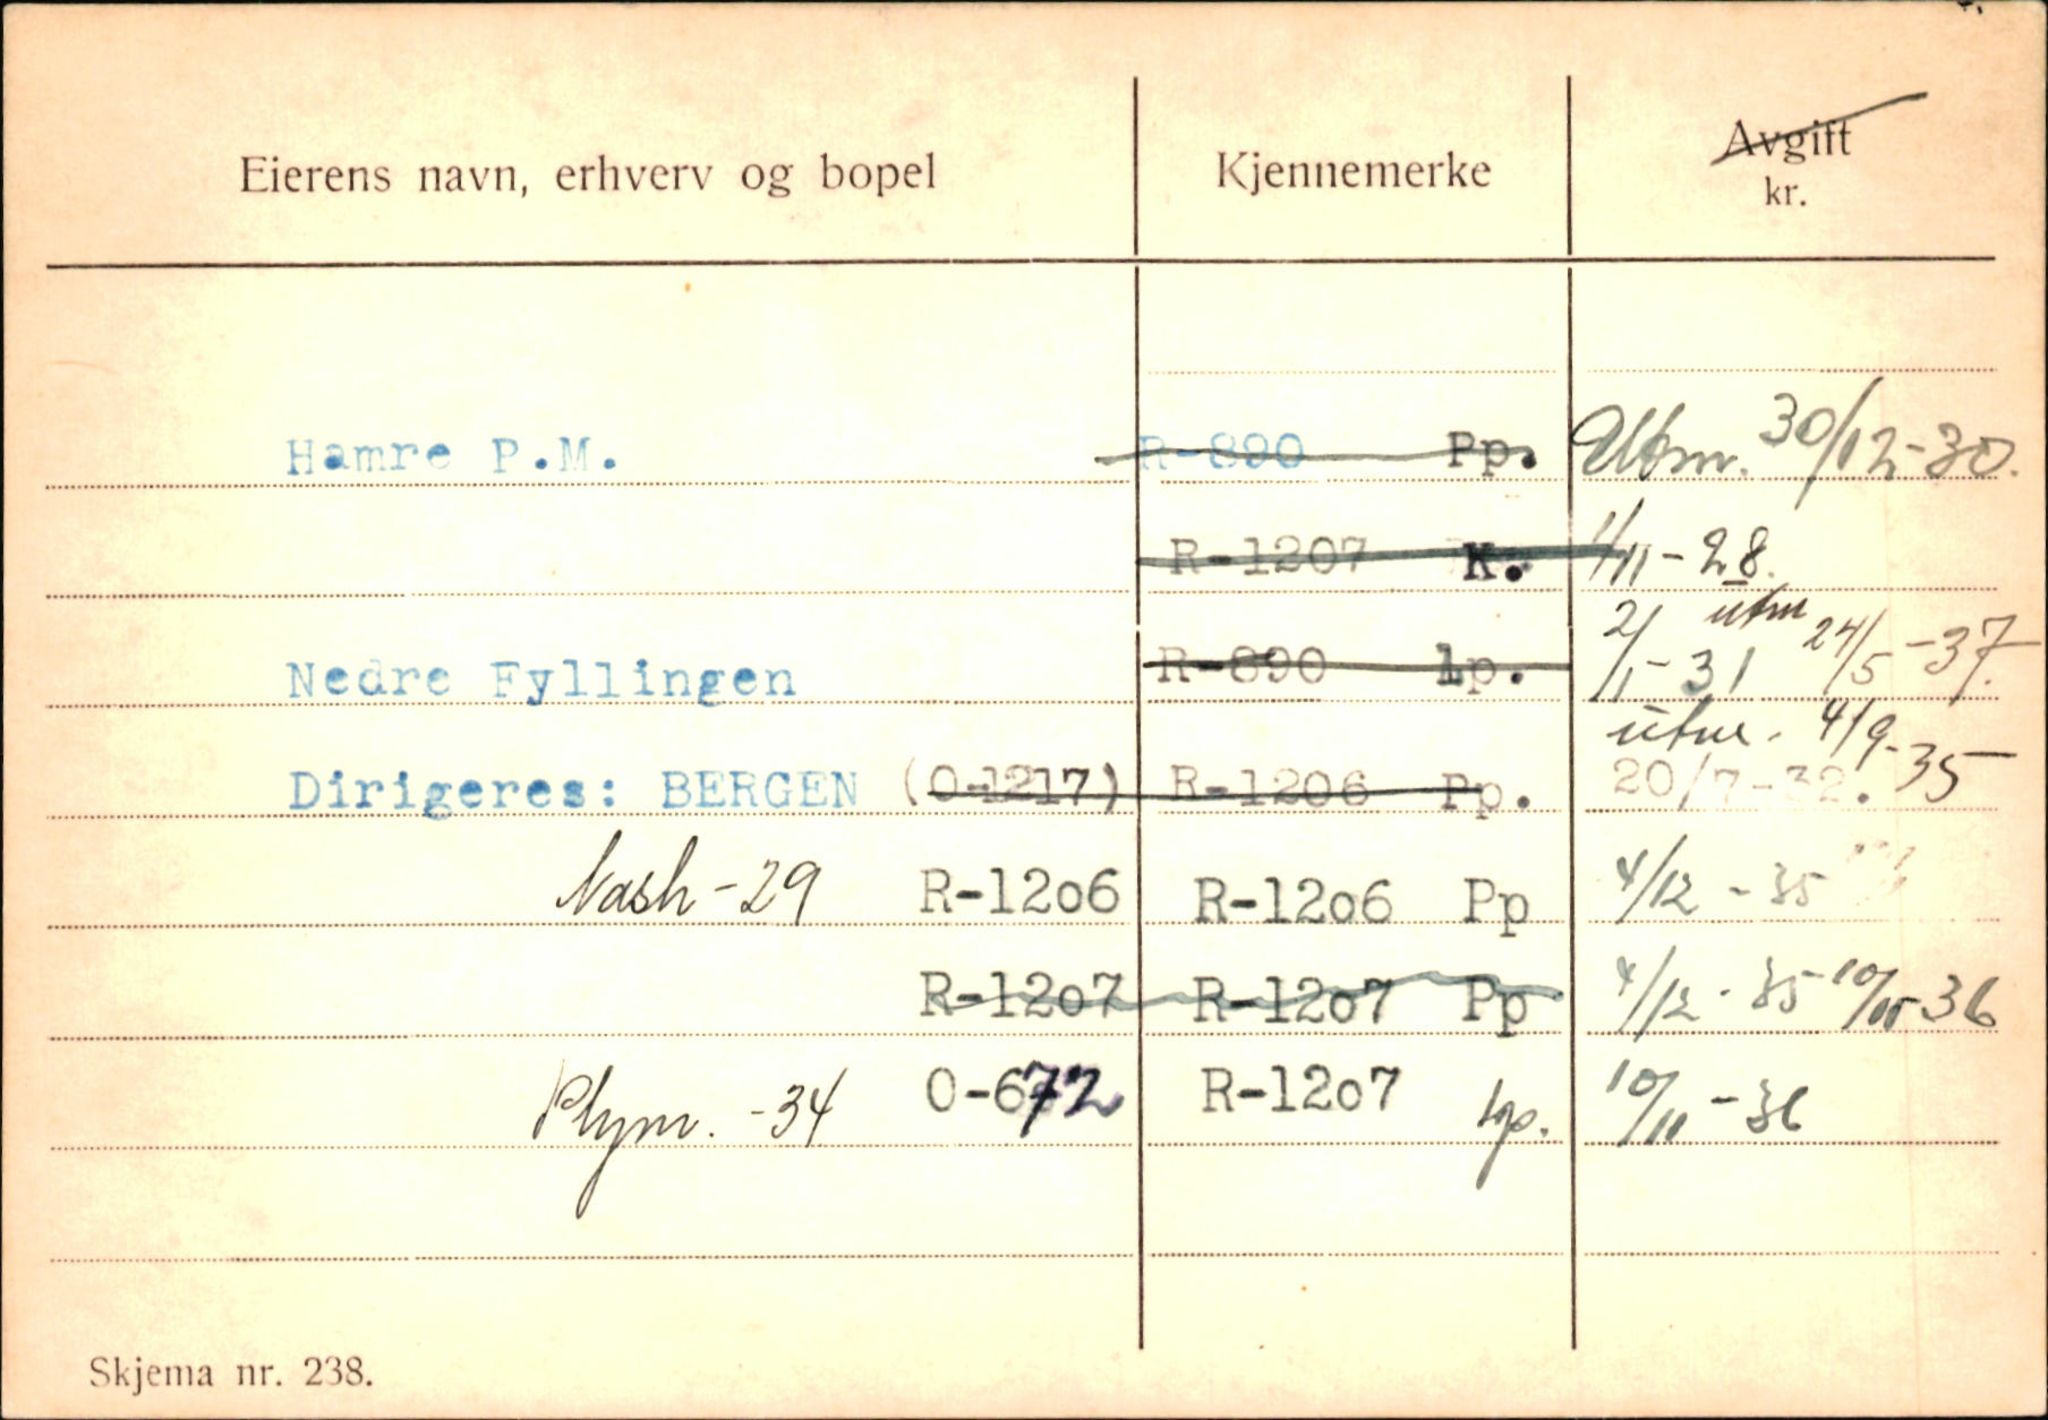 Eierens navn, erhverv og bopel Kjennemerke Avgift
kr.
Hamre P.M. R-890 Pp. Utm. 30/12-30.
R-1207 K. 1/11-28.
Nedre Fyllingen R-890 Lp. 2/1-31 utm 24/5-37.
utm. 4/9-35
Dirigeres: BERGEN (O-1217) R-1206 Pp. 20/7-32.
Nash-29 R-12o6 R-12o6 Pp 4/12-35
R-12o7 R-12o7 Pp 4/12-35 10/11-36
Plym.-34 O-672 R-12o7 Lp. 10/11-36
Skjema nr. 238.